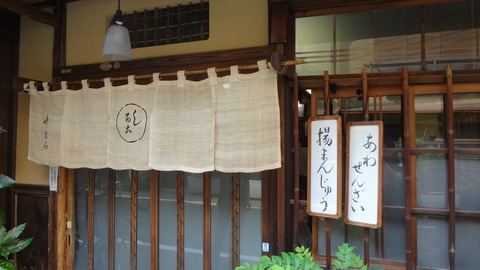 あわ
ぜんざい
揚まんじゅう
しるこ